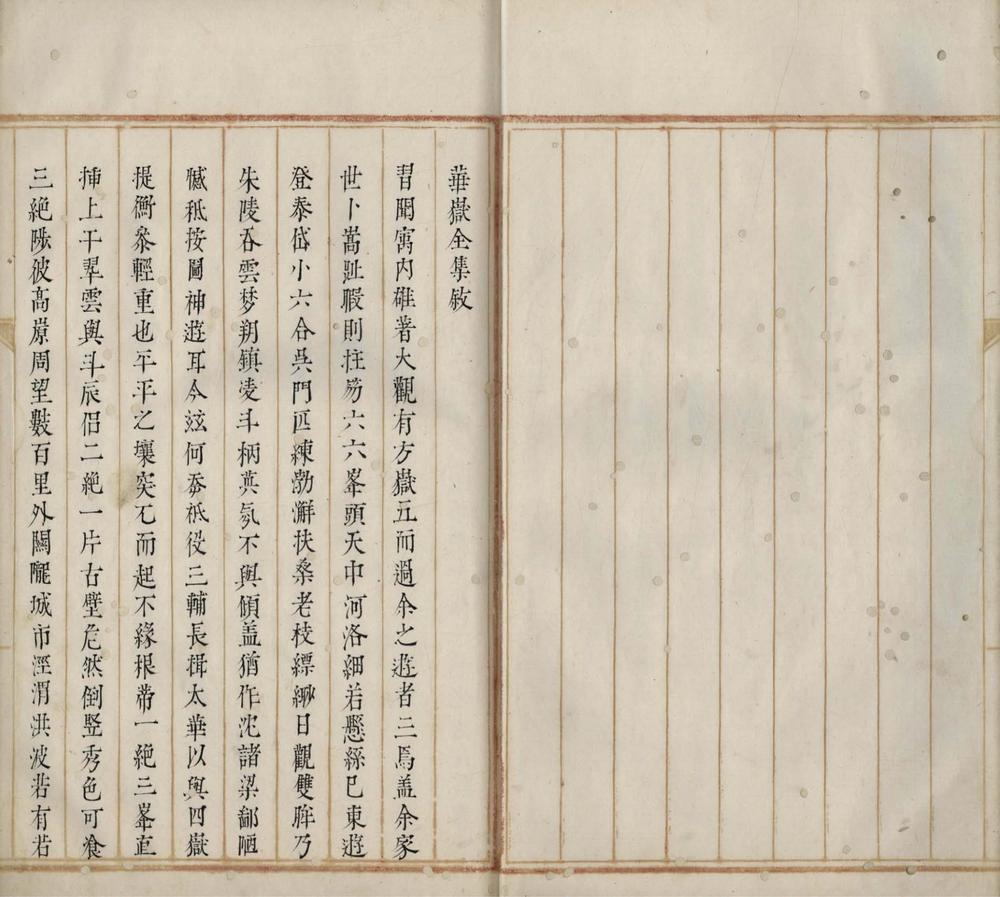 華嶽全集敘
昔聞㝢內雄著大觀有方嶽五而過余之遊者三焉盖余家
世卜嵩趾暇則拄笏六六峯頭天中河洛細若懸絲巳東遊
登泰岱小六合吳門匹練渤澥扶桑老枝縹緲日觀雙眸乃
朱陵吞雲夢朔鎮凌斗柄英氛不與傾盖猶作沈諸梁鄙陋
憾秪按圖神遊耳今玆何忝秪役三輔長揖太華以與四嶽
提衡叅輕重也平平之壤突兀而起不緣根蒂一絕三峯直
揷上干翠雲與斗辰侣二絕一片古壁危然倒竪秀色可飡
三絕陟彼高原周望數百里外關隴城市涇渭洪波若有若